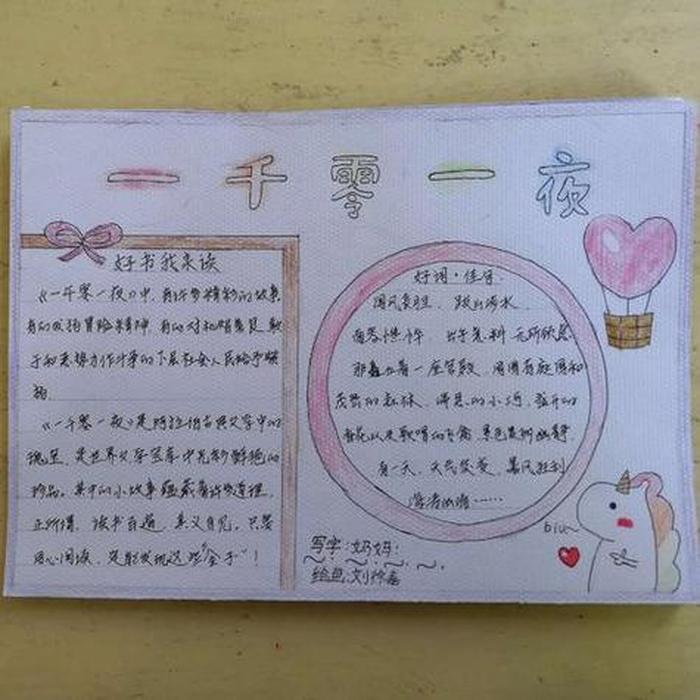 一千零一夜
好书我来读
《一千零一夜》中，有许多精彩的故事
有的发扬冒险精神，有的对机智善良敢
于和恶势力作斗争的下层社会人民给予赞
扬。
《一千零一夜》是阿拉伯古典文学中的
瑰宝，是世界文学宝库中光彩鲜艳的
珍品。其中的小故事蕴藏着许多道理，
正所谓，读书百遍，其义自见。只要
用心阅读，定能发现这些"金子"！
好词·佳句
闻风丧胆、跋山涉水、
面容憔悴
无所
那矗立着一座宫殿，周围有庭园和
茂密的森林、清
的小河，盛开的
香花以及歌唱的飞禽 景色
幽静。
有一天，天气突变，暴风
……
写字：妈妈：
绘色：刘
biu~